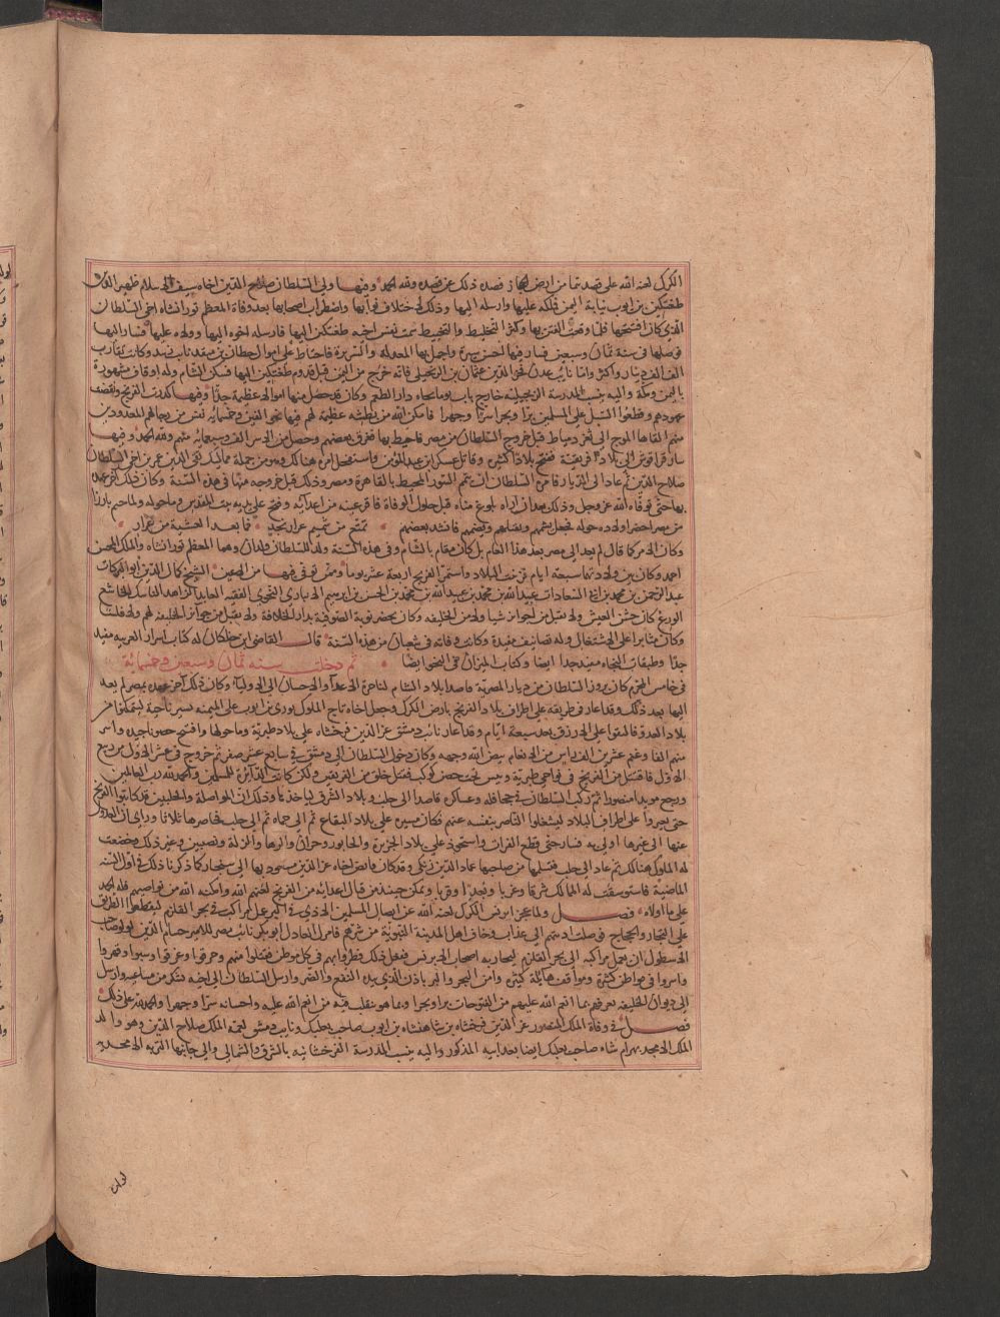 الكرك لعنه الله على قصد تيما من ارض الحجاز فصده ذلك عن قصده ولله الحمد وفيها ولى السلطان صلاح الدين اخاه سيف الاسلام ظهير الدين
طغتكين بن ايوب نيابة اليمن فملكه عليها وارسله اليها وذلك لاختلاف نوابها واضطراب اصحابها بعد وفاة المعظم توران شاه اخى السلطان
الذى كان افتتحها فلما وقعت الفتن بها وكثر التخليط والتخبيط سمت نفس اخيه طغتكين اليها فارسله اخوه اليها وولاه عليها فسار اليها
فوصلها فى سنة ثمان وسبعين فسار فيها احسن سيرة واجمل بها المعدلة والسريرة فاحتاط على اموال حطان بن منقذ نايب زبيد وكانت تقارب
الف الف دينار واكثر واما نايب عدن فخر الدين عثمان بن الزنجيلى فانه خرج من اليمن قبل قدوم طغتكين اليها فسكن الشام وله اوقاف مشهورة
باليمن ومكة واليه ينسب المدرسة الزنجيلية خارج باب توما تجاه دار الطعم وكان قد حصل منها اموالا عظيمة جدا وفيها غدرت الفرنج ونقضت
عهودهم وقطعوا السبل على المسلمين برا وبحرا سرا وجهرا فامكن الله من بطشة عظيمة لهم فيها نحو الفين وخمسمائة نفس من رجالهم المعدودين
منهم القاها الموج الى ثغر دمياط قبل خروج السلطان من مصر فاحيط بها فغرق بعضهم وحصل من الاسر الف وسبعمائة منهم ولله الحمد وفيها
سار قراقوش الى بلاد افريقية ففتح بلادا كثيرة وقاتل عسكر ابن عبد المؤمن واستفحل امره هنالك وهو من جملة مماليك تقى الدين عمر بن اخى السلطان
صلاح الدين ثم عاد الى الديار فامره السلطان ان يتمم السور المحيط بالقاهرة ومصر وذلك قبل خروجه منها فى هذه السنة وكان ذلك آخر عهده
بها حتى توفاه الله عز وجل وذلك بعد ان اراه بلوغ مناه قبل حلول الوفاة فاقر عينه من اعدايه وفتح على يديه بيت المقدس وما حوله ولما خيم بارزا
من مصر احضر اولاده حوله فجعل يشمهم ويقبلهم ويضمهم فانشد بعضهم تمتع من شميم عرار نجد فما بعد العشية من عرار
وكان الامر كما قال لم يعد الى مصر بعد هذا العام بل كان مقامه بالشام وفى هذه السنة ولد للسلطان ولدان وهما المعظم توران شاه والملك المحسن
احمد وكان بين ولادتهما سبعة ايام فزينت البلاد واستمر الفرح اربعة عشر يوما وممن توفى فيها من الاعيان الشيخ كمال الدين ابو البركات
عبد الرحمن بن محمد بن ابى السعادات عبيد الله بن محمد بن عبيد الله بن محمد بن الحسن بن ابراهيم الانبارى النحوى الفقيه العابد الزاهد الناسك الخاشع
الورع كان خشن العيش ولا يقبل من احد جوائز شيا ولا من الخليفة وكان يحضر نوبة الصوفية بدار الخلافة ولا يقبل من جوائز الخليفة لهم ولا فلسا
وكان مثابرا على الاشتغال وله تصانيف مفيدة وكانت وفاته فى شعبان من هذه السنة قال القاضى ابن خلكان له كتاب اسرار العربية مفيد
جدا وطبقات النحاة مفيد جدا ايضا وكتاب الميزان فى النحو ايضا ثم دخلت سنة ثمان وسبعين وخمسمائة
فى خامس المحرم كان بروز السلطان من ديار المصرية قاصدا بلاد الشام لمناجزة الاعدآء والاحسان الى الاوليآء وكان ذلك آخر عهده بمصر لم يعد
اليها بعد ذلك وقد اغار فى طريقه على اطراف بلاد الفرنج بارض الكرك وجعل اخاه تاج الملوك بورى بن ايوب على الميمنة يسير ناحية ليتمكنوا من
بلاد العدو فالتقوا على الازرق بعد سبعة ايام وقد اغار نايب دمشق عز الدين فرخشاه على بلاد طبرية وما حولها وافتتح حصونا جيدة واسر
منهم الفا وغنم عشرين الف راس من الانعام بيض الله وجهه وكان دخول السلطان الى دمشق فى سابع عشر صفر ثم خروج فى عشر الاول من ربيع
الاول فاقتتل مع الفرنج فى نواحى طبرية وبيسان تحت حصن كوكب فقتل خلق من الفريقين ولكن كانت الدآئرة للمسلمين والحمد لله رب العالمين
ورجع مويدا منصورا ثم ركب السلطان فى جحافله وعساكره قاصدا الى حلب وبلاد الشرق لياخذها وذلك ان المواصلة والحلبيين قد كاتبوا الفرنج
حتى يغيروا على اطراف البلاد ليشغلوا الناصر بنفسه عنهم فكان مسيره على بلاد البقاع ثم الى حماه ثم الى حلب فحاصرها ثلاثا وراى ان العدول
عنها الى غيرها اولى به فسار حتى قطع الفرات واستحوذ على بلاد الجزيرة والخابور وحران والرها والرقة ونصيبين وغير ذلك وخضعت
له الملوك هنالك ثم عاد الى حلب فتسلمها من صاحبها عماد الدين زنكى وقد كان قايض اخاه عز الدين مسعود بها الى سنجار كما ذكرنا ذلك فى اول السنة
الماضية فاستوسقت له الممالك شرقا وغربا وبعيدا وقربا وتمكن حينئذ من قتال اعدايه من الفرنج لعنهم الله وامكنه الله من نواصيهم فله الحمد
على ما اولاه فصل ولما عجز ابرنس الكرك لعنه الله عن ايصال المسلمين الاذى فى البر عمل مراكب فى بحر القلزم ليقطعوا الطريق
على التجار والحجاج فوصلت اذيتهم الى عيذاب وخاف اهل المدينة النبوية من شرهم فامر الملك العادل ابو بكر نايب مصر للامير حسام الدين لولو صاحب
الاسطول ان يعمل مراكبه الى بحر القلزم ليحارب اصحاب الابرنس ففعل ذلك فظفروا بهم فى كل موطن فقتلوا منهم وحرقوا وغرقوا وسبوا وقهروا
واسروا فى مواطن كثيرة ومواقف هائلة كثيرة وامن البحر والبر باذن الذى بيده النفع والضر وارسل السلطان الى اخيه شكر من مساعيه وارسل
الى ديوان الخليفة يعرفهم بما انعم الله عليهم من الفتوحات برا وبحرا وبما هو يتقلب فيه من انعم الله عليه واحسانه سرا وجهرا والحمد لله على ذلك
فصل فى وفاة الملك المنصور عز الدين فرخشاه بن شاهنشاه بن ايوب صاحب بعلبك ونايب دمشق لعمه الملك صلاح الدين وهو والد
الملك الامجد بهرام شاه صاحب بعلبك ايضا بعد ابيه المذكور واليه ينسب المدرسة الفرخشاهية بالشرف الشمالى والى جانبها التربة الامجدية